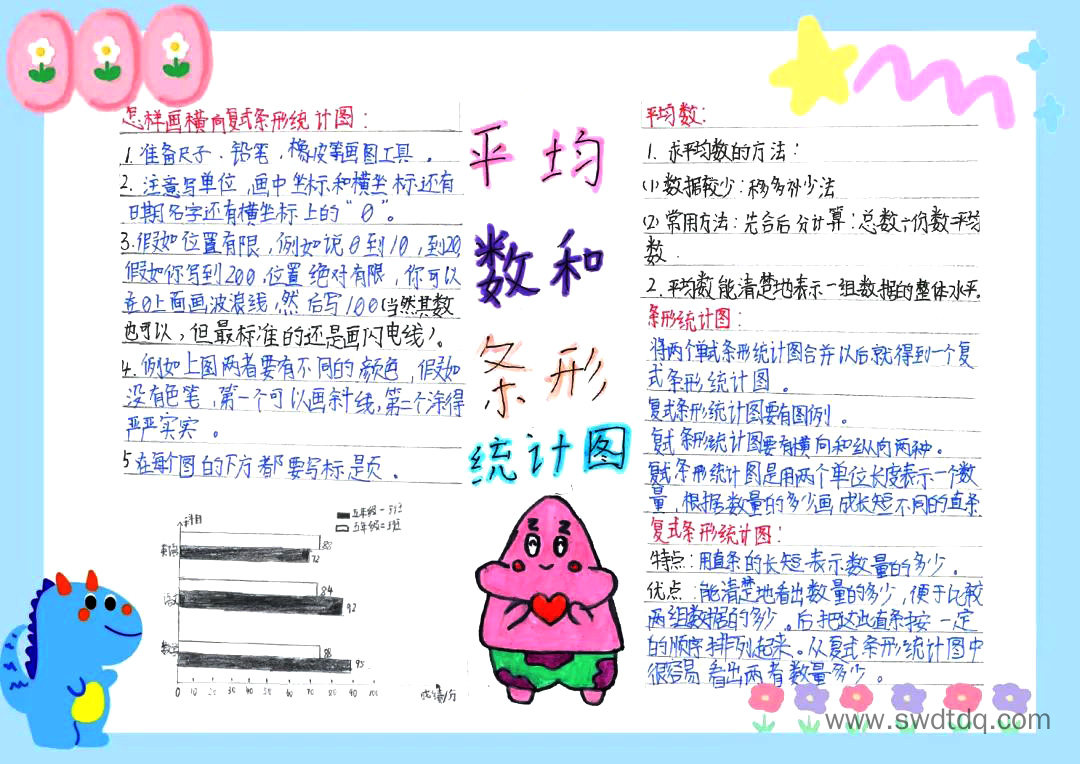 怎样画横向复式条形统计图：
1.准备尺子、铅笔，橡皮等画图工具。
2.注意写单位，画中坐标和横坐标还有
日期名字还有横坐标上的“0”。
3.假如位置有限，例如说0到10，到20,
假如你写到200，位置绝对有限，你可以
在0上面画波浪线，然后写100(当然其数
也可以，但最标准的还是画闪电线)。
4.例如上图两者要有不同的颜色，假如
没有色笔，第一个可以画斜线，第二个涂得
严严实实。
5在每个图的下方都要写标是页。
科目
五年级一班
五年级二班
英语
80
72
语文
84
92
数学
88
95
0 10 20 30 40 50 60 70 80 90 100
成绩/分
平均
数和
条形
统计图
平均数：
1.求平均数的方法：
(1)数据较少：移多补少法
(2)常用方法：先合后分计算：总数÷份数平均
数.
2.平均数能清楚地表示一组数据的整体水平.
条形统计图：
将两个单式条形统计图合并以后就得到一个复
式条形统计图。
复式条形统计图要有图例。
复式条形统计图要有横向和纵向两种。
复式条形统计图是用两个单位长度表示一个数
量，根据数量的多少画成长短不同的直条
复式条形统计图：
特点：用直条的长短表示数量的多少。
优点：能清楚地看出数量的多少，便于比较
两组数据的多少。后把这些直条按一定
的顺序排列起来。从复式条形统计图中
很容易看出两者数量多少。
www.swdtdq.com